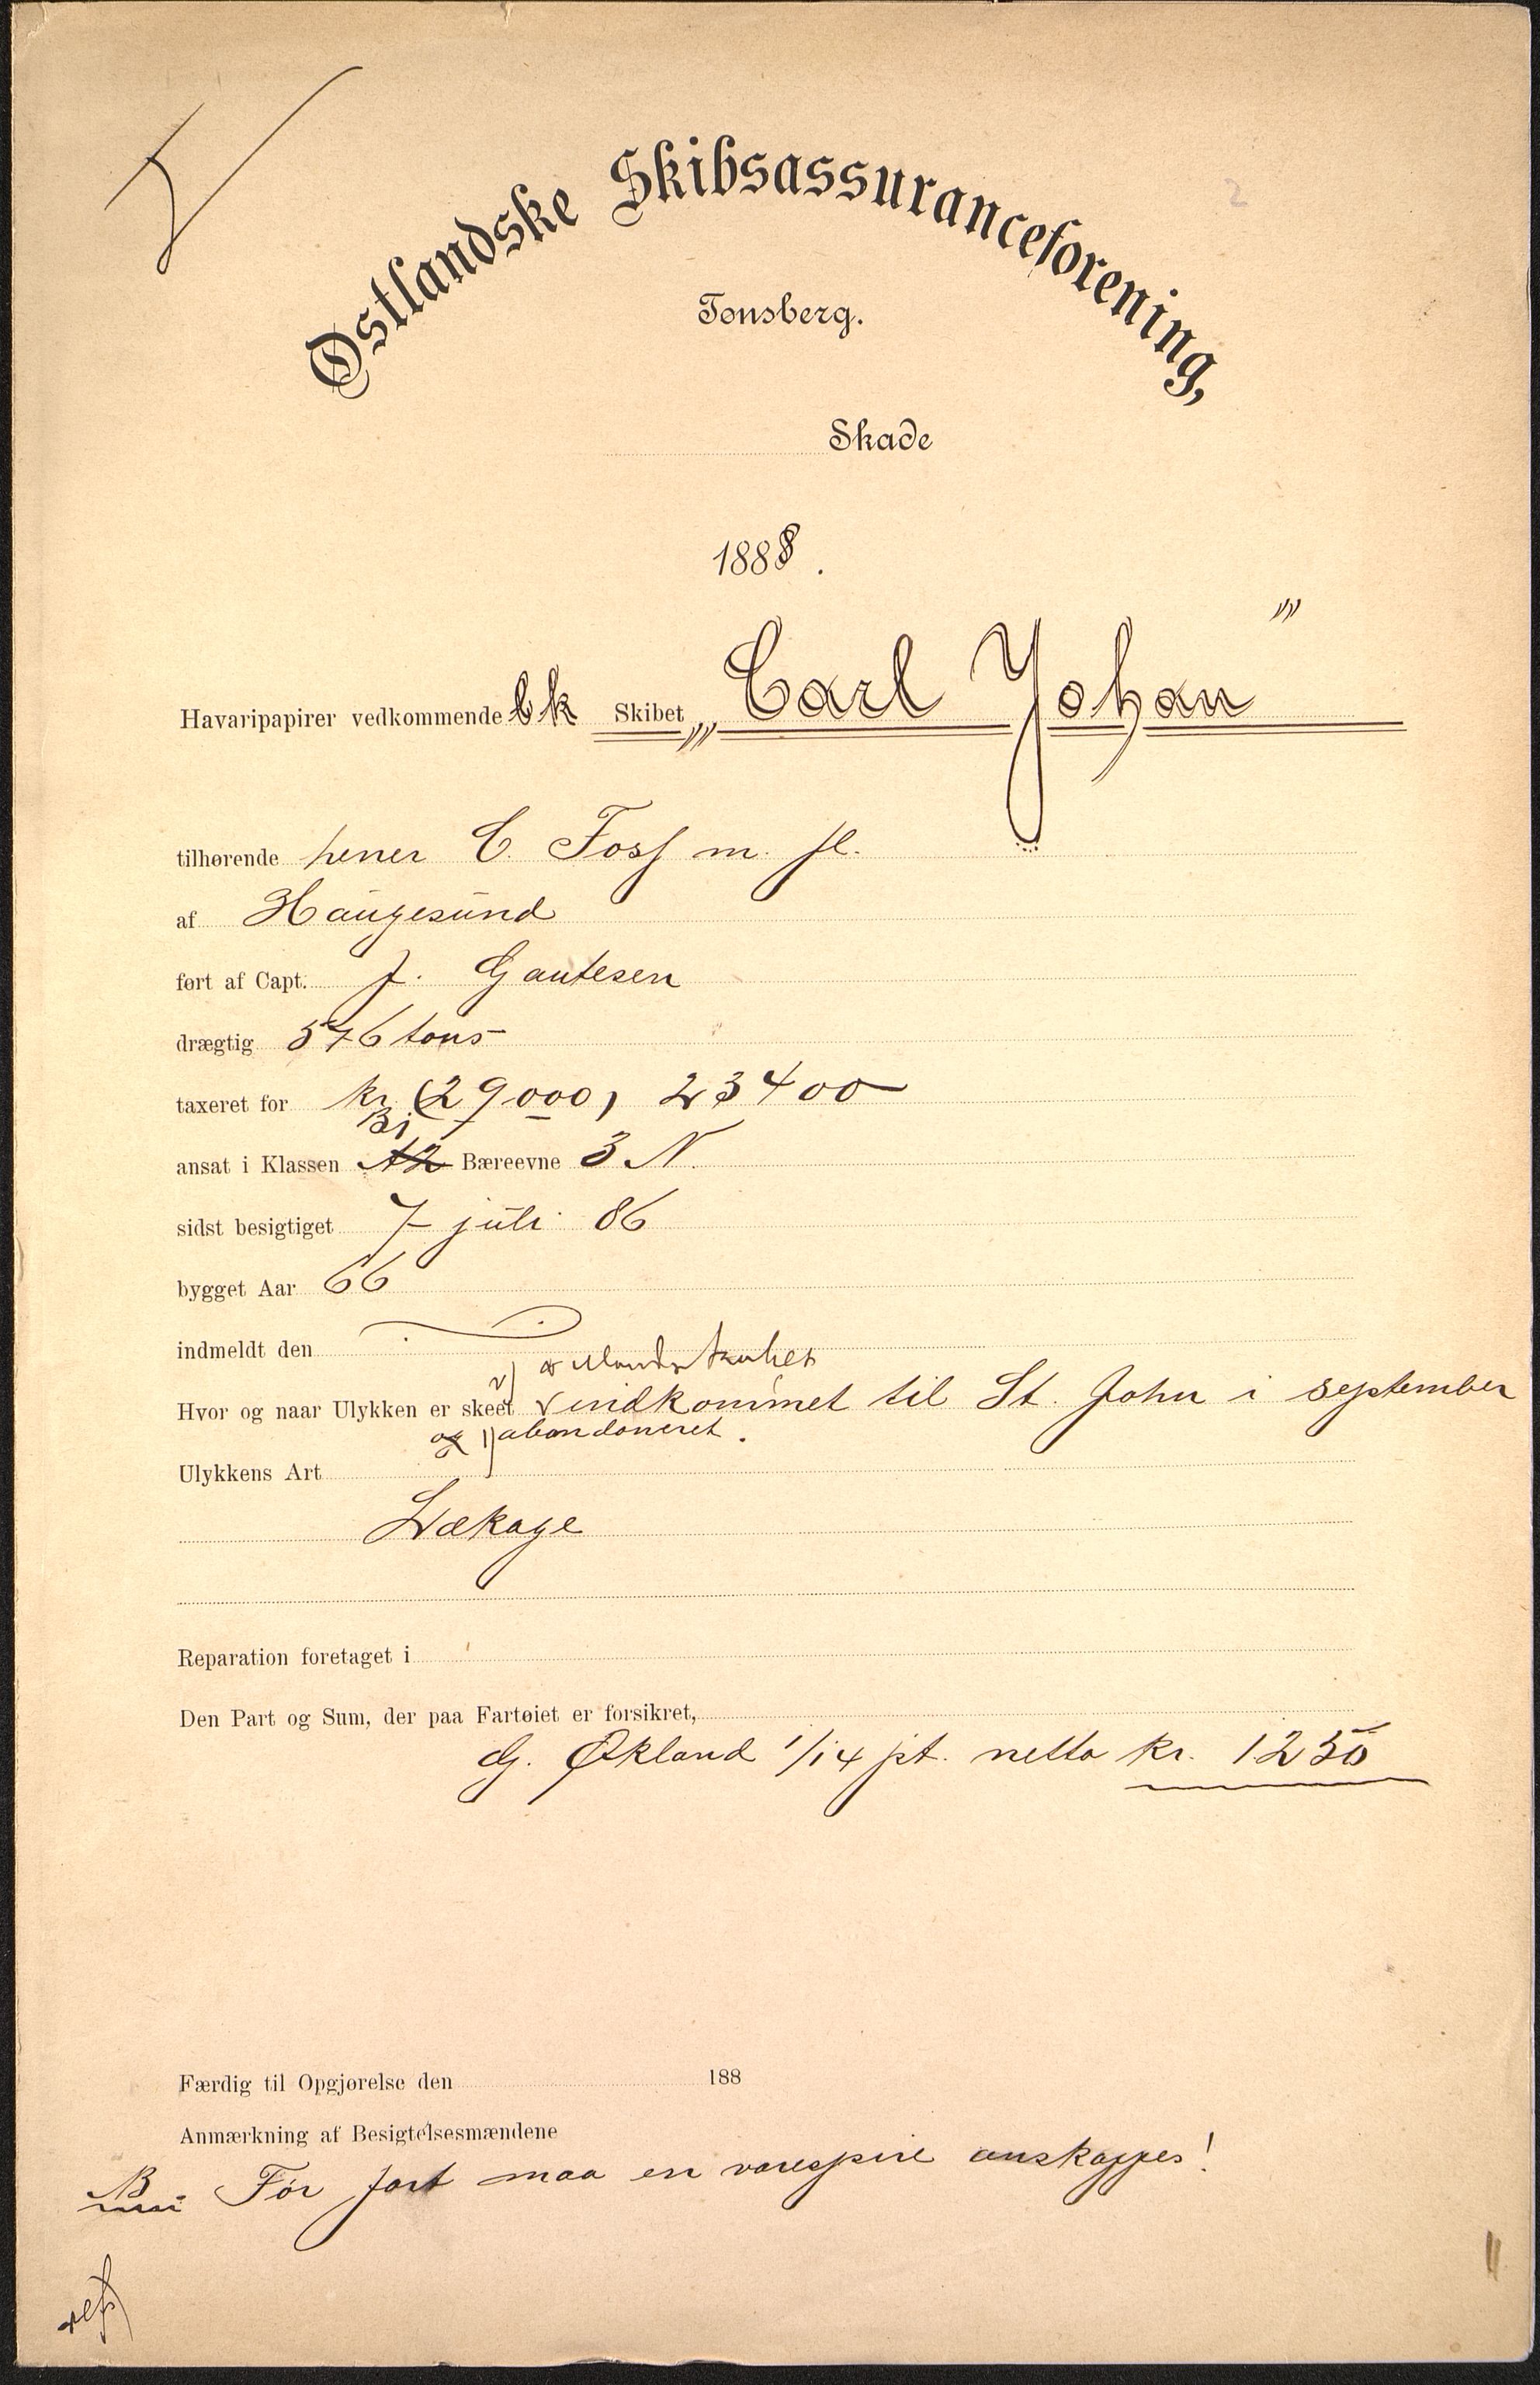 2
Østlandske Skibsassuranceforening,
Tønsberg.
Skade
1888.
Havaripapirer vedkommende bk Skibet „Carl Johan"
tilhørende herrer C. Foss m. fl.
af Haugesund
ført af Capt. J. Gautesen
drægtig 576 tons
taxeret for kr (29000) 23400
B1
ansat i Klassen A2 Bæreevne 3 N.
sidst besigtiget 7 juli 86
bygget Aar 66
indmeldt den
2) &
Hvor og naar Ulykken er skeet indkommet til St. John i september
og 1) abandoneret.
Ulykkens Art
Lækage
Reparation foretaget i
Den Part og Sum, der paa Fartøiet er forsikret,
G. Økland 1/14 pt. netto kr. 1250
Færdig til Opgjørelse den 188
Anmærkning af Besigtelsesmændene
Før fart maa en varespire anskaffes!